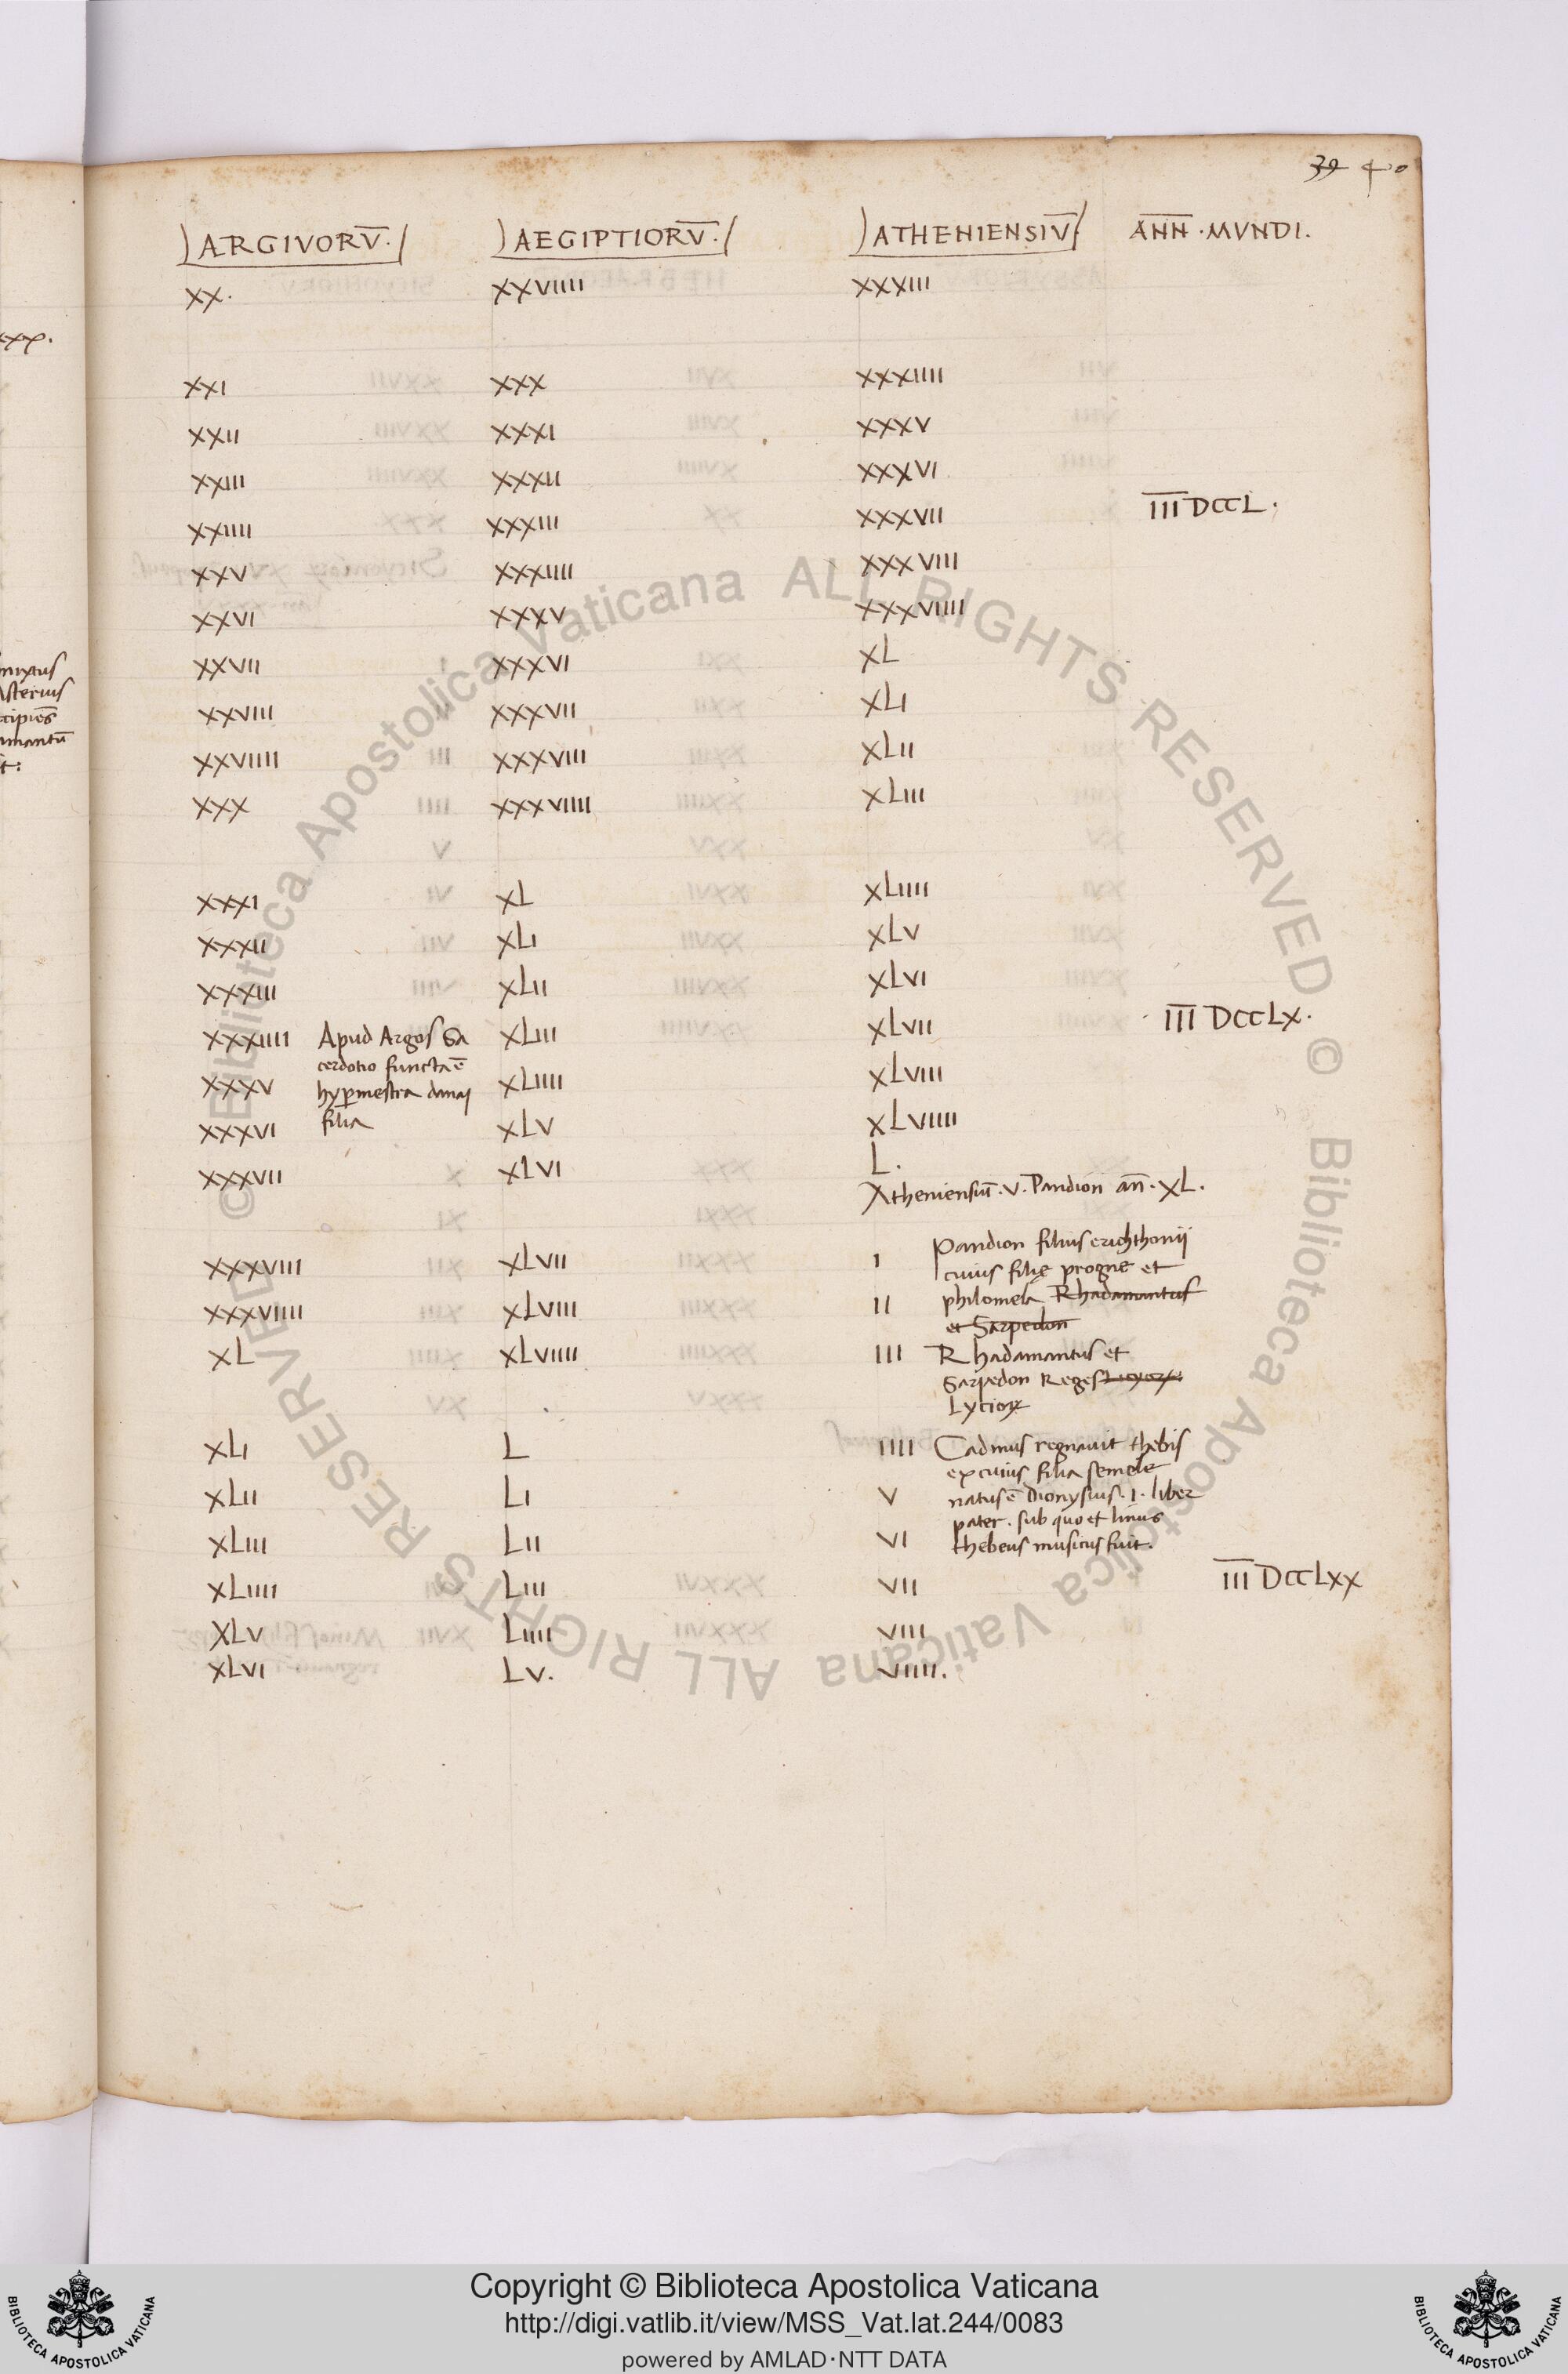 39 40
ARGIVORV̅. AEGIPTIORV̅. ATHENIENSIV̅ AN̅N̅ · MVNDI.
XX. XXVIIII XXXIII
XXI XXX XXXIIII
XXII XXXI XXXV
XXIII XXXII XXXVI
XXIIII XXXIII XXXVII I̅I̅I̅ DCCL.
XXV XXXIIII XXXVIII
XXVI XXXV XXXVIIII
XXVII XXXVI XL
XXVIII XXXVII XLI
XXVIIII XXXVIII XLII
XXX XXXVIIII XLIII
XXXI XL XLIIII
XXXII XLI XLV
XXXIII XLII XLVI
XXXIIII Apud Argos Sa XLIII XLVII I̅I̅I̅ DCCLX.
cerdotio functa ē
XXXV hyꝑmestra danaj XLIIII XLVIII
filia
XXXVI XLV XLVIIII
XXXVII XLVI L.
Atheniensiū · V · Pandion an̄ · XL.
Pandion filius erichthonij
XXXVIII XLVII I cuius filię progne et
XXXVIIII XLVIII II philomela Rhadamantus
et Sarpedon
XL XLVIIII III Rhadamantus et
Sarpedon Reges
Lycioꝝ
XLI L IIII Cadmus regnauit thebis
ex cuius filia semele
XLII LI V natus ē Dionysius · i · liber
pater. sub quo et linus
XLIII LII VI thebeus musicus fuit.
XLIIII LIII VII I̅I̅I̅ DCCLXX
XLV LIIII VIII
XLVI LV. VIIII.
© Biblioteca Apostolica Vaticana ALL RIGHTS RESERVED © Biblioteca Apostolica Vaticana ALL RIGHTS RESERVED
Copyright © Biblioteca Apostolica Vaticana
http://digi.vatlib.it/view/MSS_Vat.lat.244/0083
powered by AMLAD·NTT DATA
BIBLIOTECA APOSTOLICA VATICANA
BIBLIOTECA APOSTOLICA VATICANA